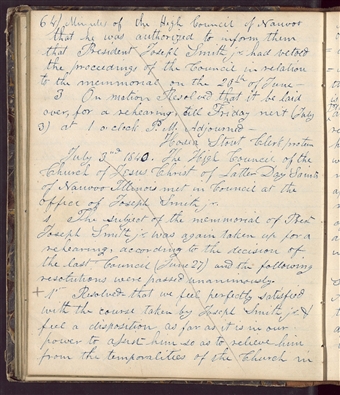 64 Minutes of the High Council of Nauvoo
that he was authorized to inform them
that President Joseph Smith jr had vetoed
the proceedings of the Council in relation
to the memmorial on the 29th of June—
3 On motion Resolved that it be laid
over, for a rehearing, till Friday next (July
3) at 1 oclock P.M. Adjourned—
Hosea Stout Clerk protem
July 3rd 1840. The High Council of the
Church of Jesus Christ of Latter Day Saints
of Nauvoo Illinois met in Council at the
Office of Joseph Smith jr.
The subject of the memmorial of Pres
Joseph Smith jr was again taken up for a
rehearing, according to the decision of
the last Council (June 27) and the following
resolutions were passed unanimously.
+ 1st Resolved that we feel perfectly satisfied
with the course taken by Joseph Smith jr. &
feel a disposition as far as it is in our
power to assist him so as to relieve him
from the temporalities of the Church in